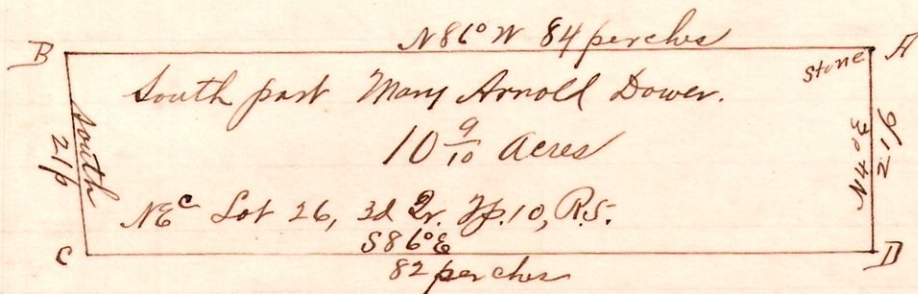 N86°W 84 perches
B
A
Stone
South part Mary Arnold Dower.
10 9/10 Acres
South
21p
N4°E
21p
NEc Lot 26, 3d Qr. Tp. 10, R.5.
S86°E
C
D
82 perches